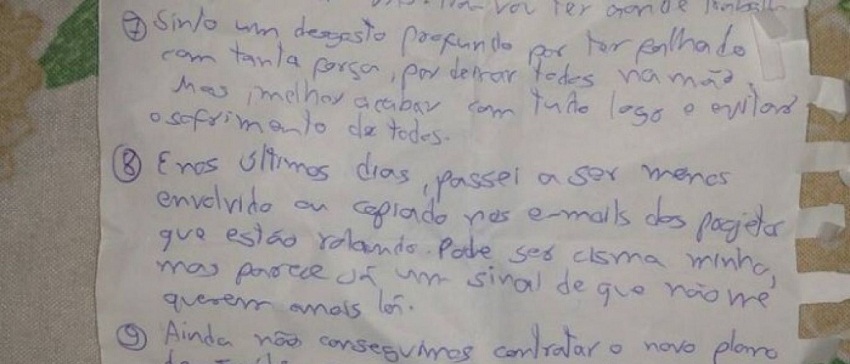 vou ter aonde trabalh
⑦ Sinto um desgosto profundo por ter falhado
com tanta força, por deixar todos na mão.
Mas, melhor acabar com tudo logo e evitar
o sofrimento de todos.
⑧ E nos últimos dias, passei a ser menos
envolvido ou copiado nos e-mails dos projetos
que estão rolando. Pode ser cisma minha,
mas parece já um sinal de que não me
querem mais lá.
⑨ Ainda não conseguimos contratar o novo plano